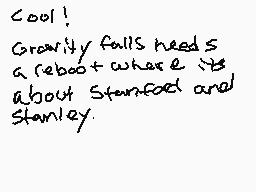 Cool!
Gravity falls needs
a reboot where its
about Stanford and
Stanley.